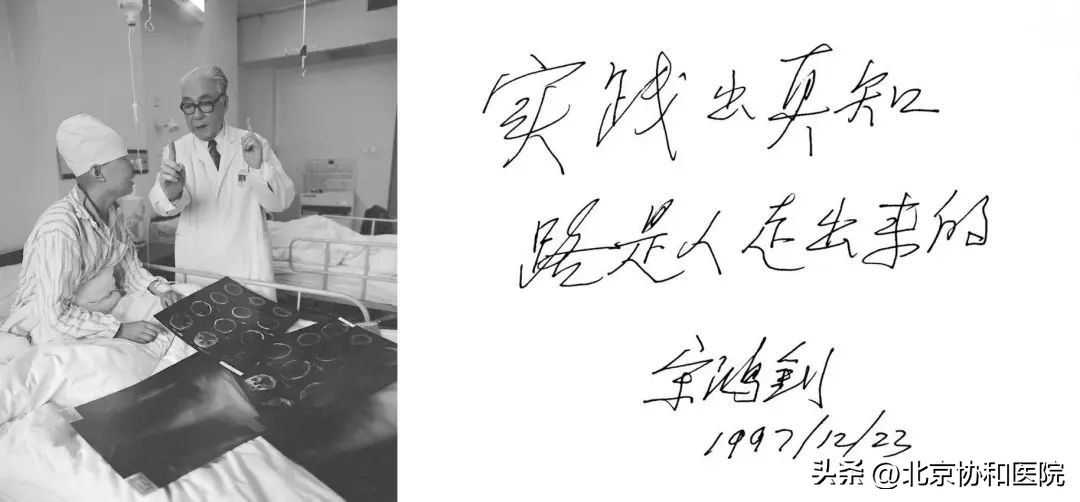 实践出真知
路是人走出来的
宋鸿钊
1997/12/23
头条 @北京协和医院